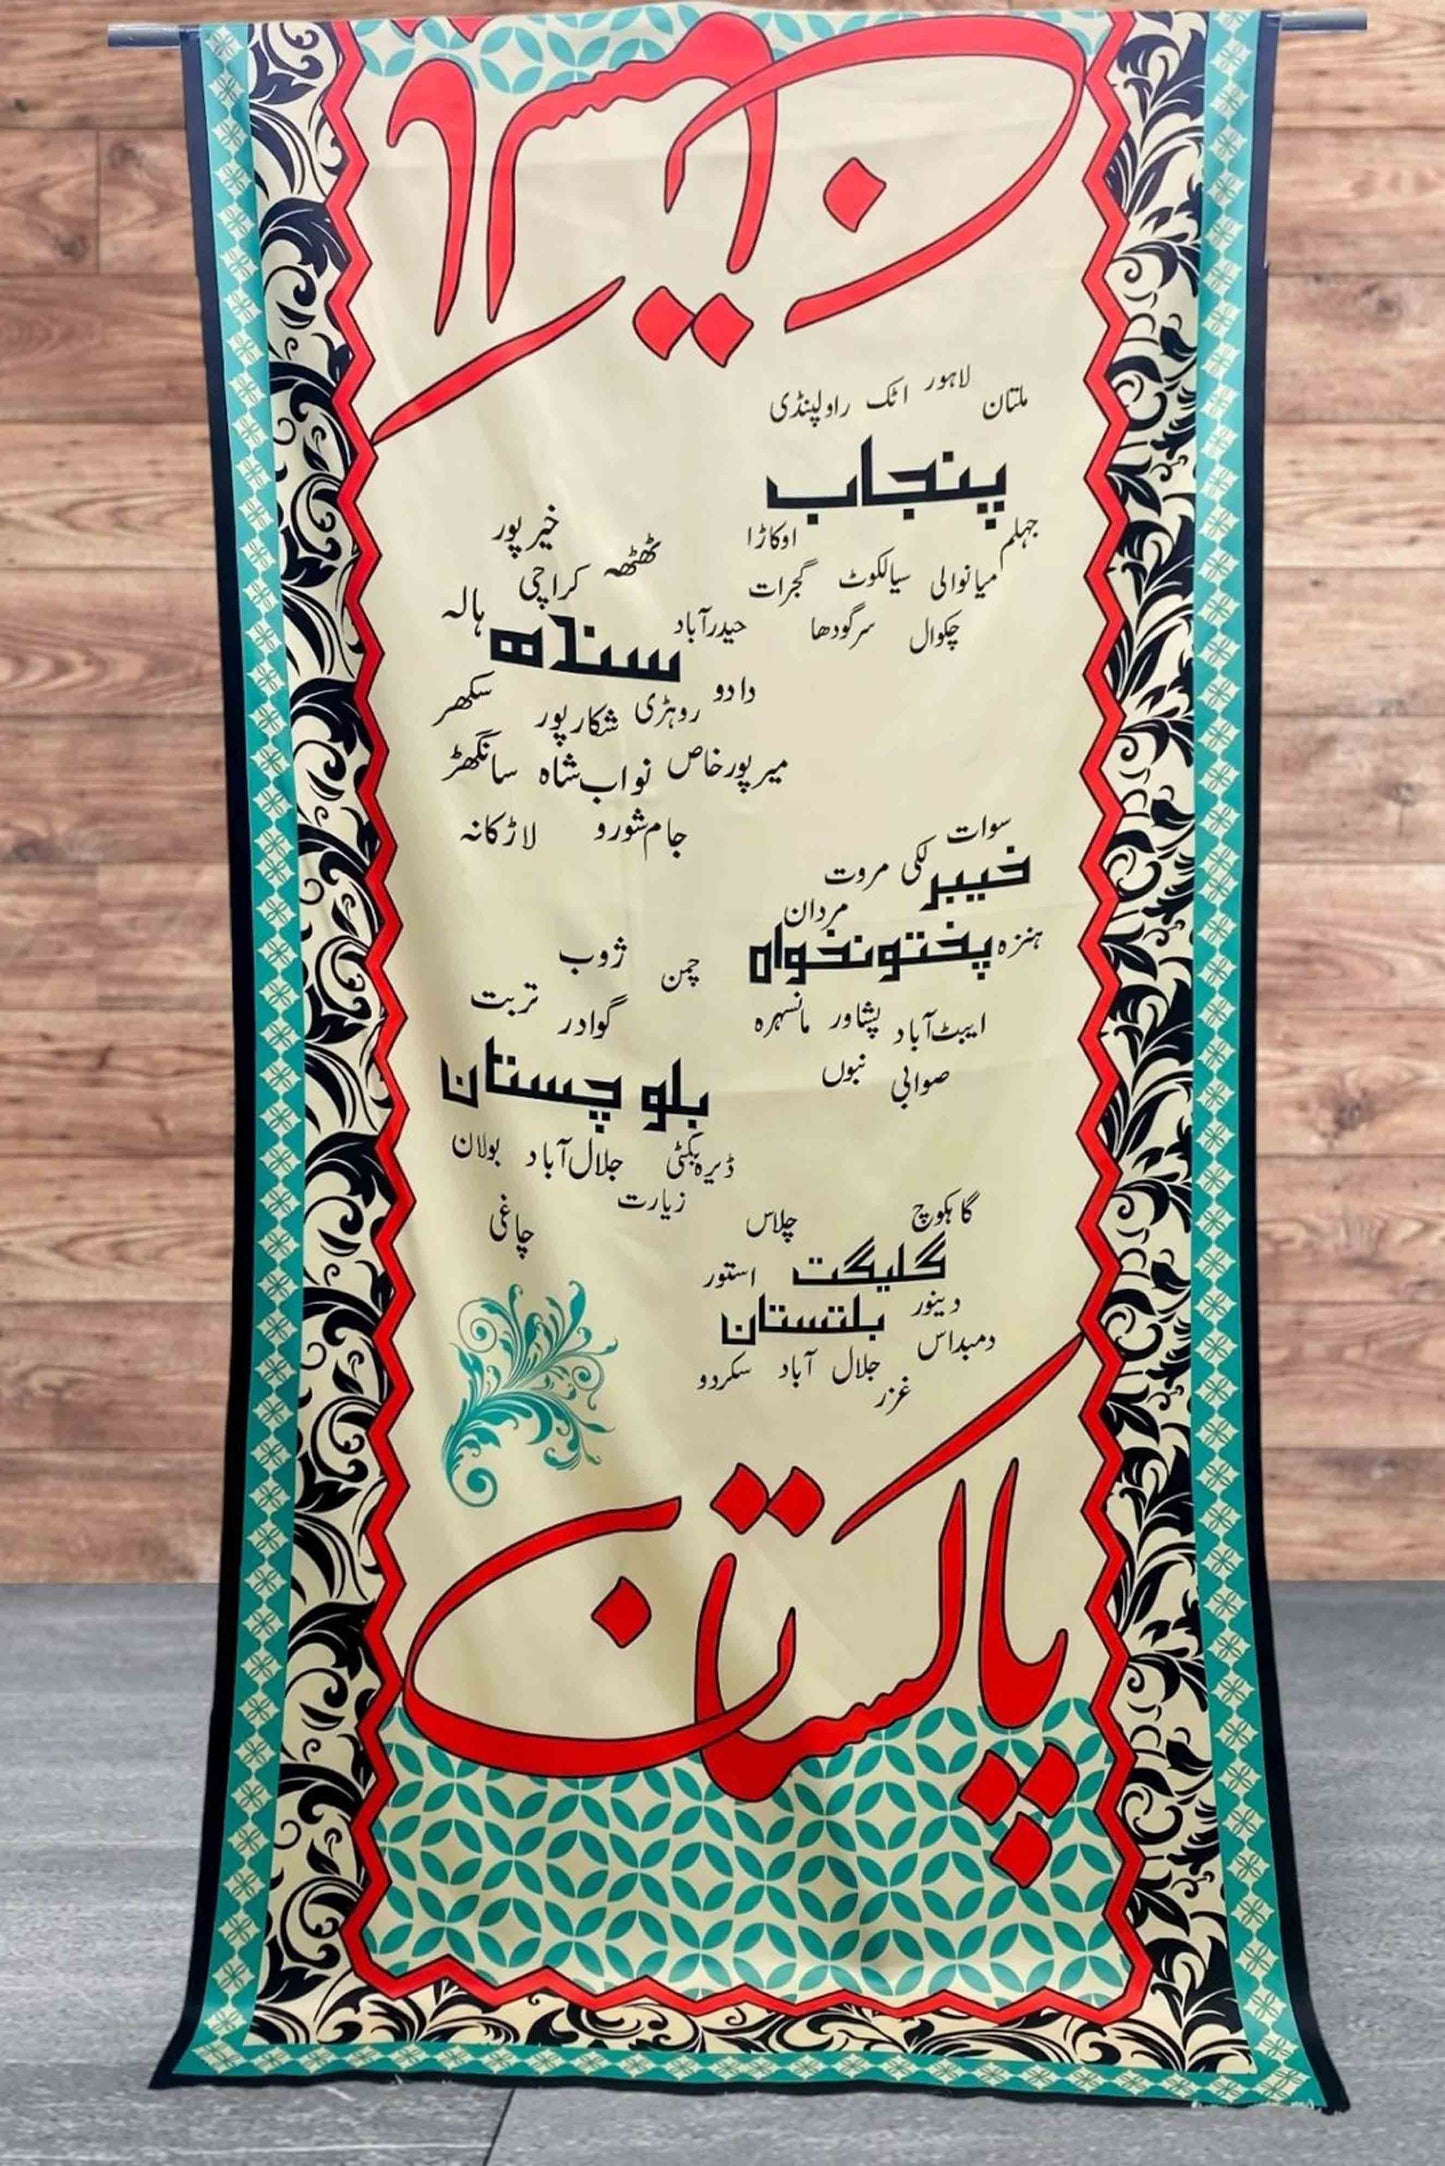 ملتان لاہور اٹک راولپنڈی
پنجاب
جہلم اوکاڑا
میانوالی سیالکوٹ گجرات
چکوال سرگودھا
خیرپور
ٹھٹھہ کراچی ہالہ
حیدرآباد سندھ
دادو روہڑی شکارپور سکھر
میرپورخاص نواب شاہ سانگھڑ
جام شورو لاڑکانہ
سوات
خیبر لکی مروت
مردان
ہنزہ پختونخواہ
ایبٹ آباد پشاور مانسہرہ
صوابی نبوں
چمن ژوب
گوادر تربت
بلوچستان
ڈیرہ بگٹی جلال آباد بولان
زیارت چاغی
گاہکوچ چلاس
گلیگت استور
دینور بلتستان
دمبداس
جلال آباد سکردو
غزر
پاکستان